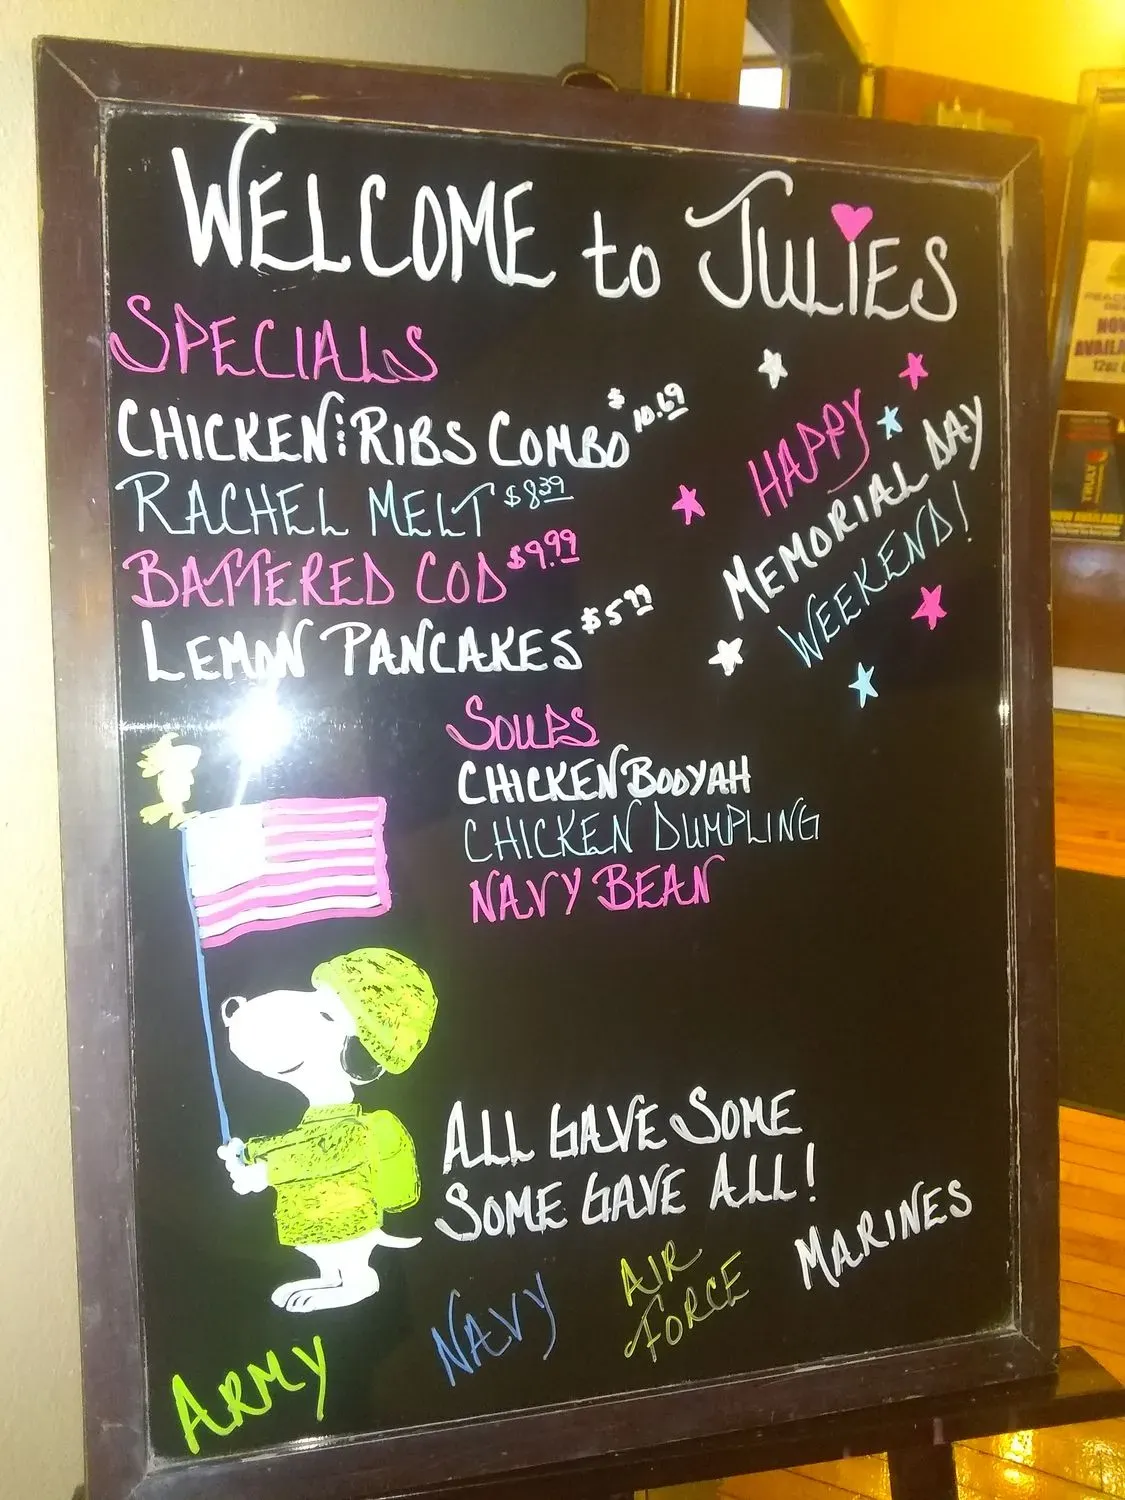 WELCOME to JULIES
SPECIALS
CHICKEN & RIBS COMBO $10.69
RACHEL MELT $8.39
BATTERED COD $9.99
LEMON PANCAKES $5.99
HAPPY
MEMORIAL DAY
WEEKEND!
SOUPS
CHICKEN BOOYAH
CHICKEN DUMPLING
NAVY BEAN
ALL GAVE SOME
SOME GAVE ALL!
ARMY
NAVY
AIR
FORCE
MARINES
NOW
TRULY